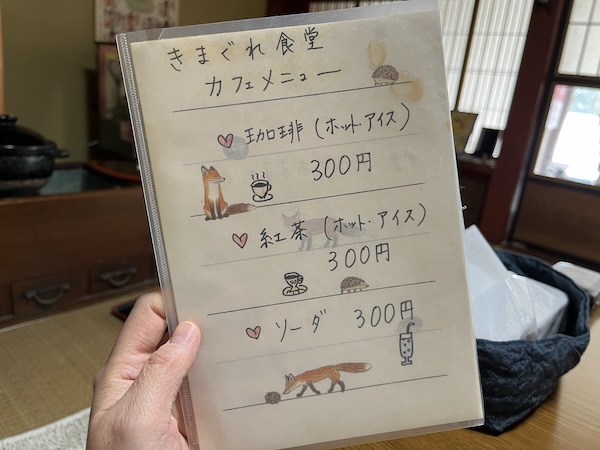 きまぐれ食堂
カフェメニュー
珈琲（ホット・アイス）
300円
紅茶（ホット・アイス）
300円
ソーダ 300円